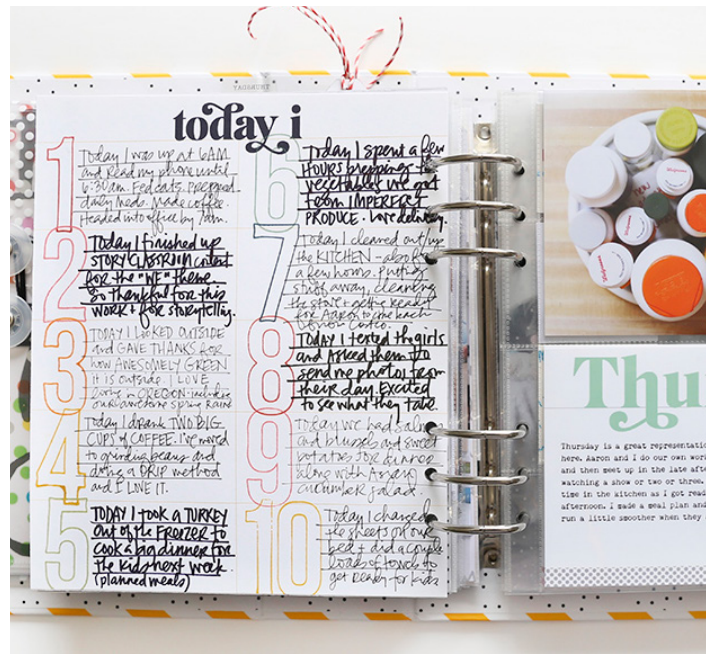 today i
1
Today I was up at 6AM
and Read my phone until
6:30am. Fed cats, prepped
daily Meds. Made coffee.
Headed into office by 7am.
2
Today I finished up
STORY CLASSROOM content
for the "WE" theme.
So thankful for this
WORK + for storytelling.
3
TODAY I LOOKED OUTSIDE
and GAVE THANKS FOR
how AWESOMELY GREEN
it is outside. I LOVE
living in OREGON
our awesome spring Rains
4
Today I drank TWO BIG
CUPS of COFFEE. I've moved
to grinding beans and
doing a DRIP method
and I LOVE IT.
5
TODAY I TOOK A TURKEY
OUT of the FREEZER to
Cook a big dinner for
the kids next week.
(planned meals)
6
Today I spent a few
HOURS prepping the
vegetables we got
from IMPERFECT
PRODUCE. Love delivery.
7
Today I cleaned out/up
the KITCHEN - also for
a few hours. Putting
stuff away, cleaning
the start + getting ready
for Aaron to
8
Today I texted the girls
and Asked them to
send me photos from
their day. Excited
to see what they take
9
Today we had salmon
and brussel and sweet
potatoes for dinner
along with Asian
cucumber salad.
10
Today I changed
the sheets on our
bed + did a couple
loads of towels to
get Ready for kids
Thu
Thursday is a great representati
here. Aaron and I do our own wor
and then meet up in the late afte
watching a show or two or three.
time in the kitchen as I got read
afternoon. I made a meal plan and
run a little smoother when they